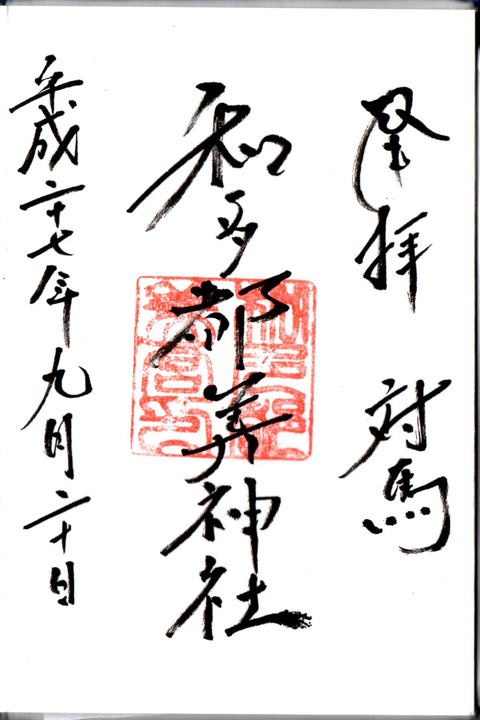 奉拝 対馬
和多都美神社
平成二十七年九月二十日